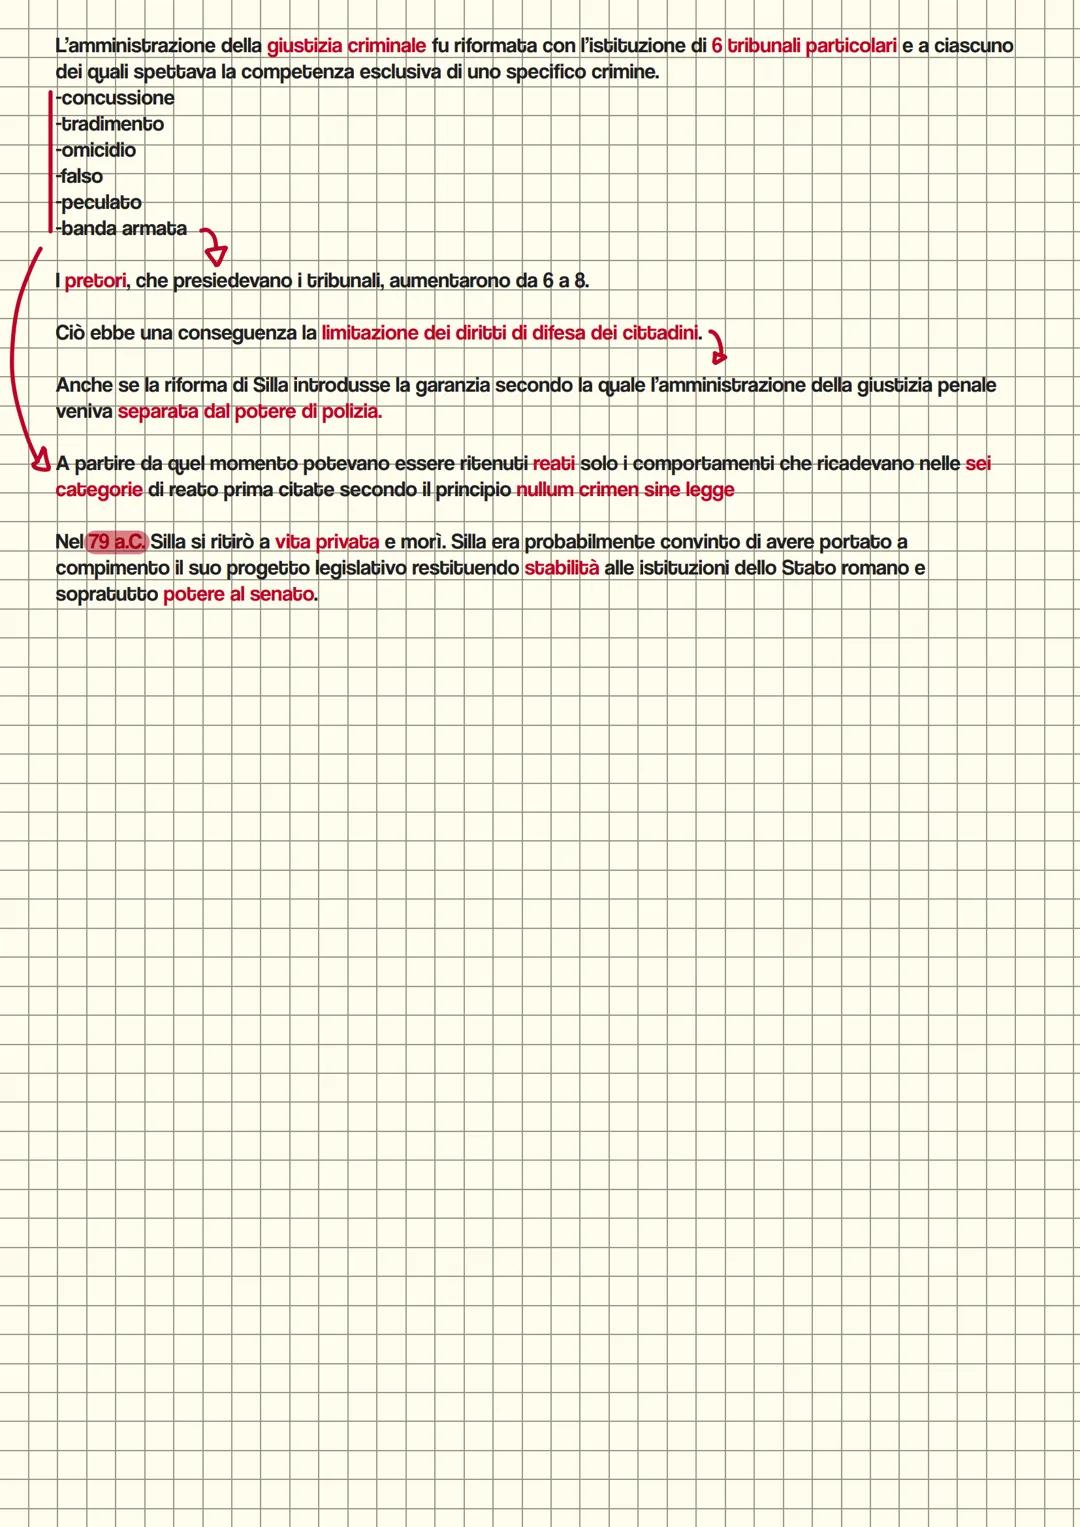 L'amministrazione della giustizia criminale fu riformata con l'istituzione di 6 tribunali particolari e a ciascuno
dei quali spettava la competenza esclusiva di uno specifico crimine.
-concussione
-tradimento
-omicidio
-falso
-peculato
-banda armata
I pretori, che presiedevano i tribunali, aumentarono da 6 a 8.
Ciò ebbe una conseguenza la limitazione dei diritti di difesa dei cittadini.
Anche se la riforma di Silla introdusse la garanzia secondo la quale l'amministrazione della giustizia penale
veniva separata dal potere di polizia.
A partire da quel momento potevano essere ritenuti reati solo i comportamenti che ricadevano nelle sei
categorie di reato prima citate secondo il principio nullum crimen sine legge
Nel 79 a.C. Silla si ritirò a vita privata e morì. Silla era probabilmente convinto di avere portato a
compimento il suo progetto legislativo restituendo stabilità alle istituzioni dello Stato romano e
sopratutto potere al senato.